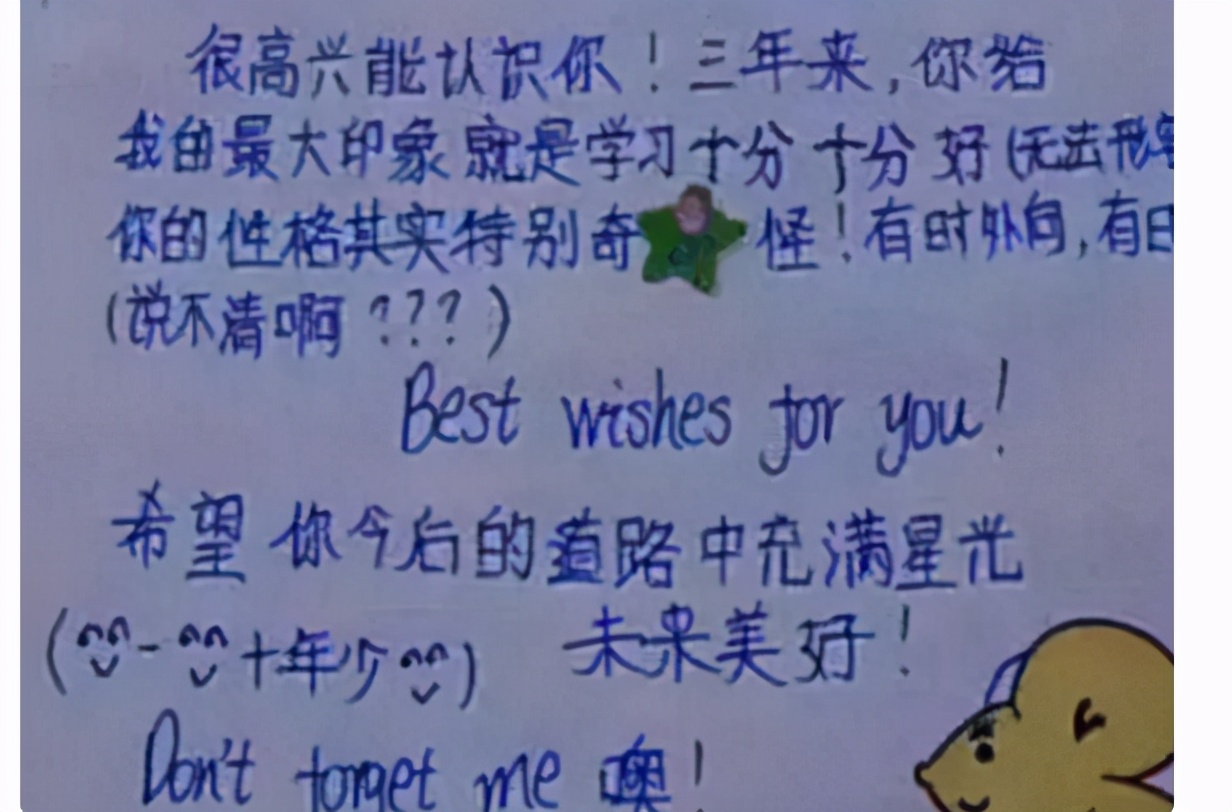 很高兴能认识你！三年来，你给
我的最大印象就是学习十分十分好(无法形容
你的性格其实特别奇怪！有时外向，有
(说不清啊???)
Best wishes for you!
希望你今后的道路中充满星光
(十年少) 未来美好！
Don't forget me 噢！